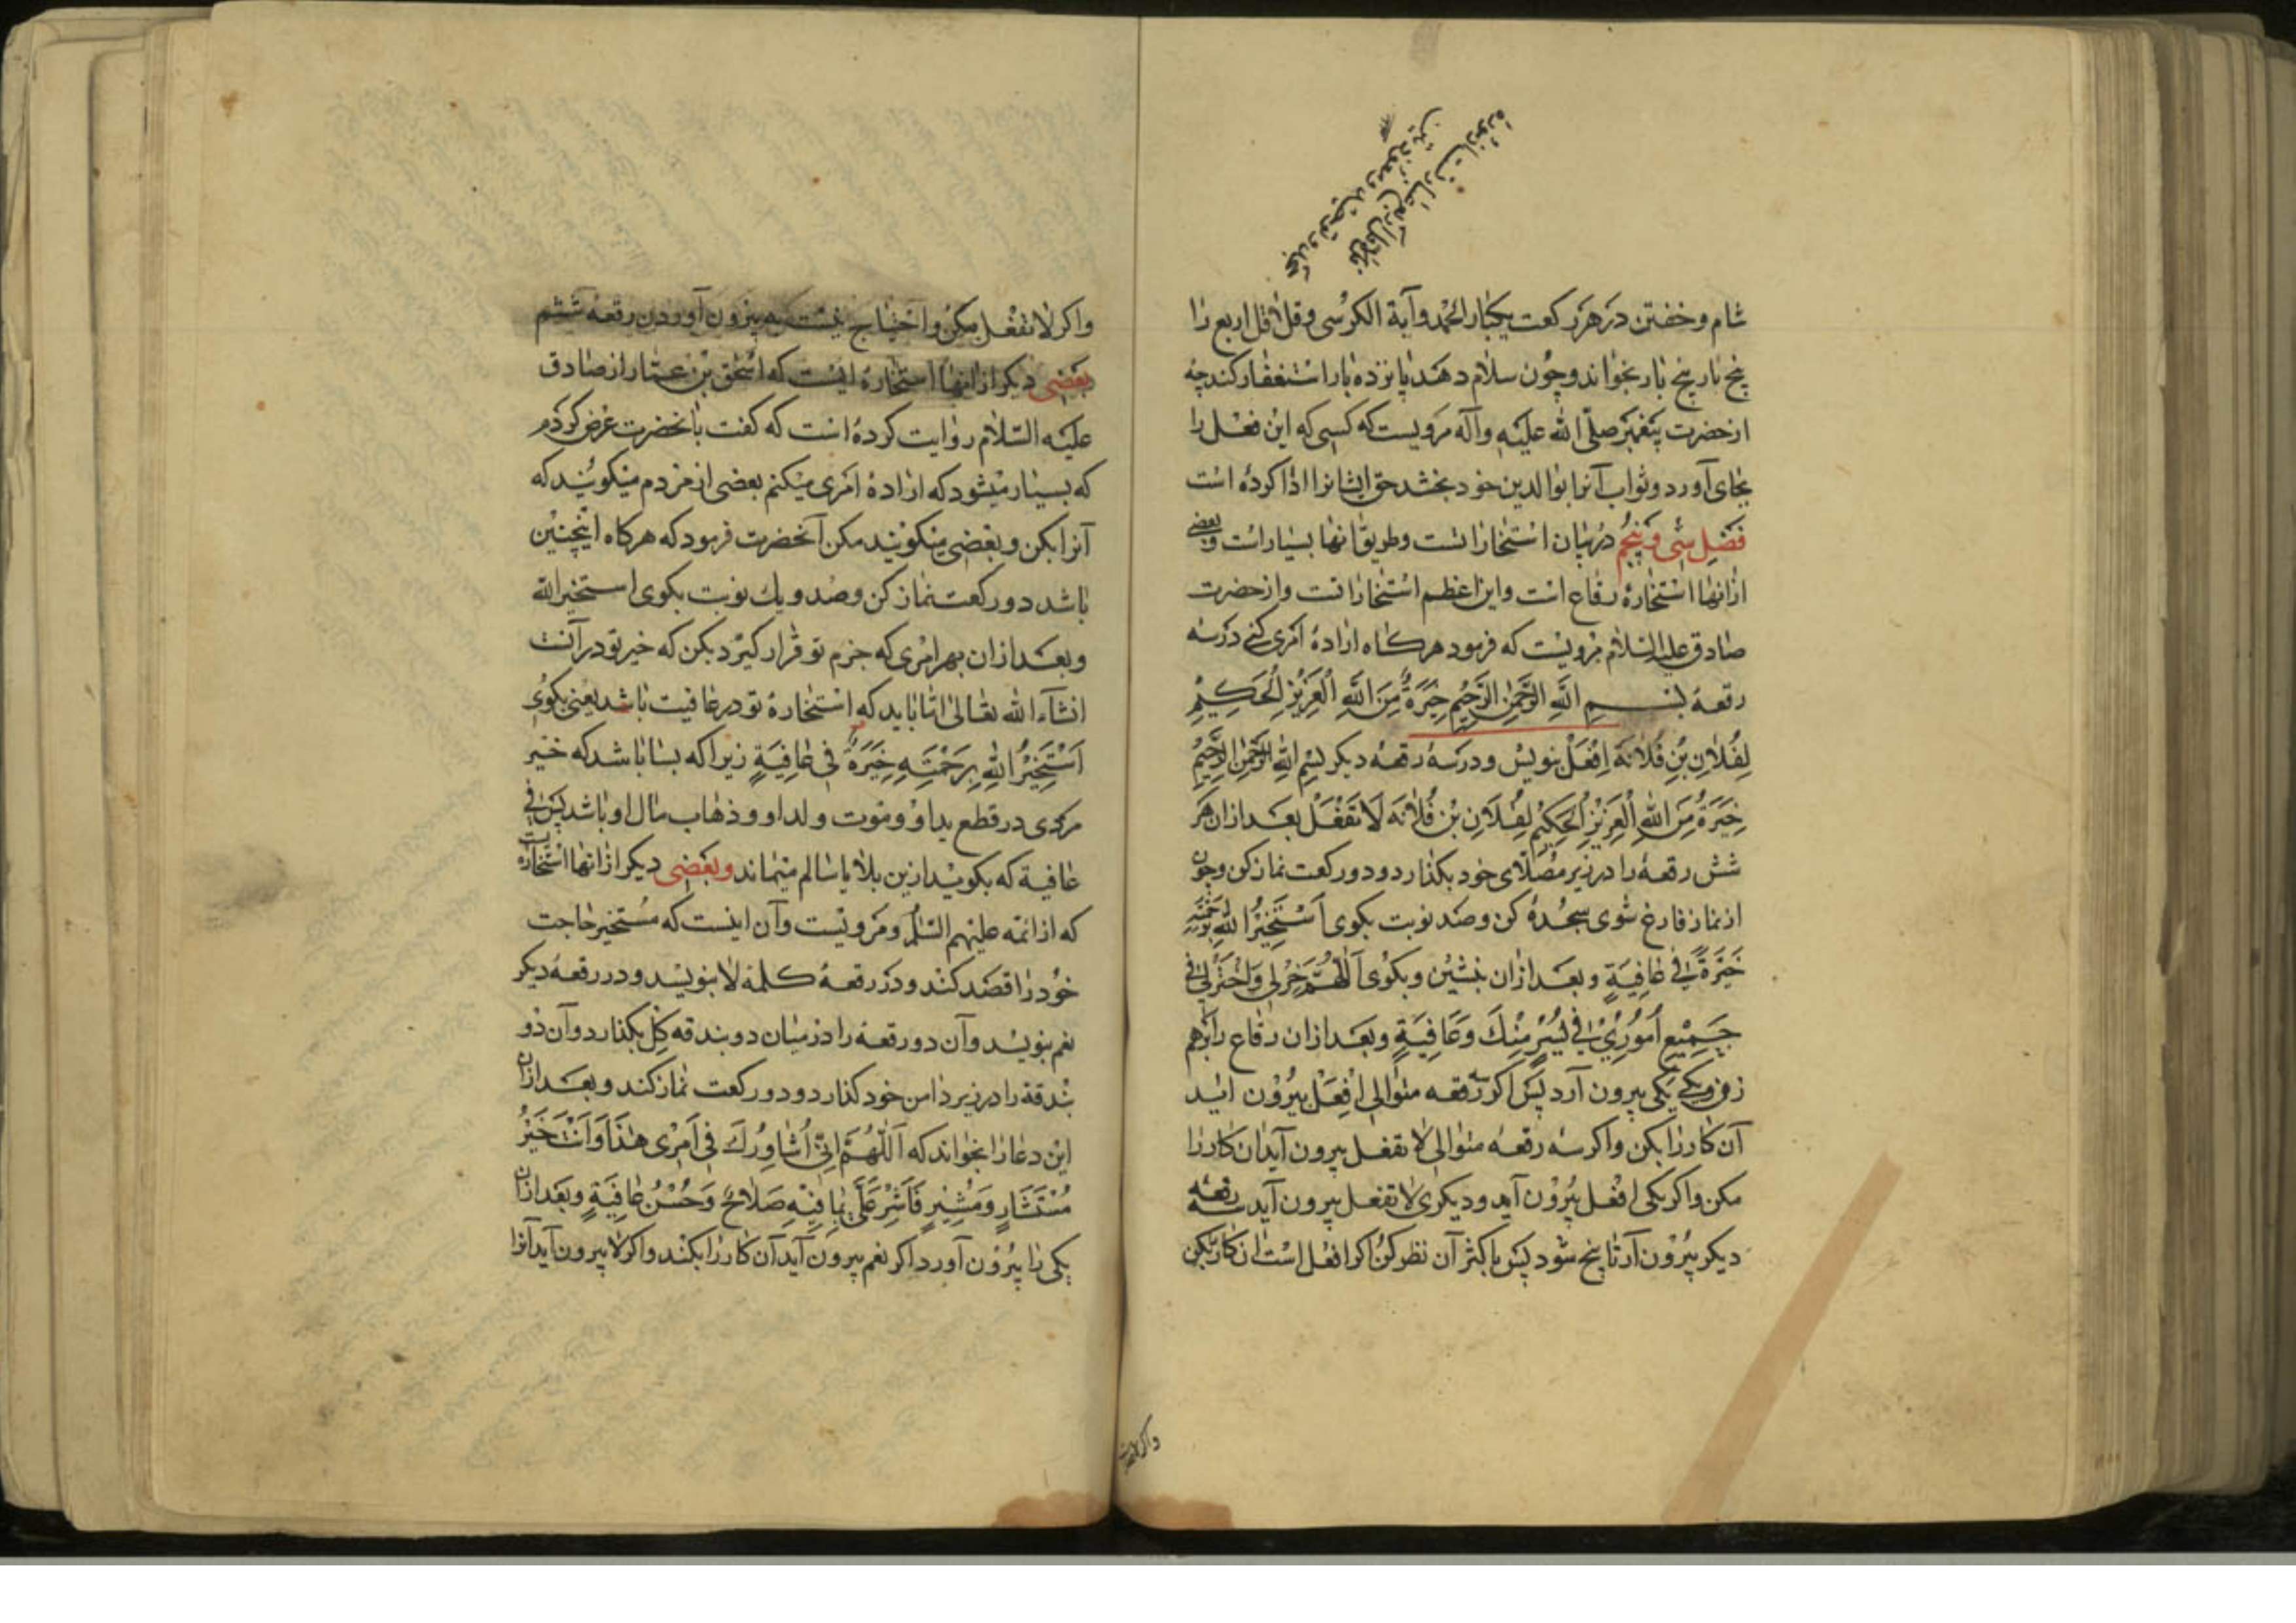 شام و خفتن در هر رکعت یکبار الحمد و آیة الکرسی و قل لاقل اربع را
پنج بار پنج بار بخواند و چون سلام دهد پانزده بار استغفار کند چه
از حضرت پیغمبر صلّی الله علیه وآله مرویست که کسی که این فعل را
بجای آورد و ثواب آنرا بوالدین خود بخشد حق ایشانرا ادا کرده است
فصل سی و پنجم در بیان استخاراتست و طریق آنها بسیار است و بعضی
از آنها استخارهٔ رقاع است و این اعظم استخارات است و از حضرت
صادق علیه السلام مرویست که فرمود هرکاه ارادهٔ امری کنی در سه
رقعه بسم الله الرحمن الرحیم خِیَرَةٌ مِنَ اللهِ الْعَزِیزِ الْحَکِیمِ
لِفُلانِ بْنِ فُلانَةَ اِفْعَلْ بنویس و در سه رقعه دیکر بسم الله الرحمن الرحیم
خِیَرَةٌ مِنَ اللهِ الْعَزِیزِ الْحَکِیمِ لِفُلانِ بْنِ فُلانَه لَا تَفْعَلْ بعد از آن هر
شش رقعه را در زیر مصلّای خود بکذارد و دو رکعت نماز کن و چون
از نماز فارغ شوی سجده کن و صد نوبت بکوی اَسْتَخِیرُ اللهَ بِرَحْمَتِهِ
خِیَرَةً فی عافِیَةٍ و بعد از آن بنشین و بکوی اَللّهُمَّ خِرْلی وَاخْتَرْلی فی
جَمِیعِ اُمُورِی فی یُسْرٍ مِنْکَ وَعافِیَةٍ و بعد از آن رقاع را برهم
زن و یکی یکی بیرون آرد پس اکر سه رقعه متوالی افعل بیرون آید
آن کار را بکن و اکر سه رقعه متوالی لا تفعل بیرون آید آن کار را
مکن و اکر یکی افعل بیرون آید و دیکری لا تفعل بیرون آید سه رقعه
دیکر بیرون آر تا پنج شود پس باکثر آن نظر کن اکر افعل است آن کار بکن
واکر لا تفعل مکن و احتیاج نیست به بیرون آوردن رقعه ششم
بعضی دیکر از آنها استخارهٔ ایست که اسحق بن عمار از صادق
علیه السّلام روایت کرده است که کفت بآنحضرت عرض کردم
که بسیار میشود که ارادهٔ امری میکنم بعضی از مردم میکویند که
آنرا بکن و بعضی میکویند مکن آنحضرت فرمود که هرکاه اینچنین
باشد دو رکعت نماز کن و صد و یک نوبت بکوی استخیر الله
و بعد از آن بهر امری که جزم تو قرار کیرد بکن که خیر تو در آنست
انشآء الله تعالی امّا باید که استخارهٔ تو در عافیت باشد یعنی بکوی
اَسْتَخِیرُ اللهَ بِرَحْمَتِهِ خِیَرَةً فی عافِیَةٍ زیرا که بسا باشد که خیر
مردی در قطع ید او و موت ولد او و ذهاب مال او باشد پس فی
عافیة که بکوید ازین بلایا سالم میماند و بعضی دیکر از آنها استخاره ایست
که از ائمه علیهم السّلام مرویست و آن اینست که مستخیر حاجت
خود را قصد کند و در رقعهٔ کلمهٔ لا بنویسد و در رقعهٔ دیکر
نعم بنویسد و آن دو رقعه را در میان دو بندقه کل بکذارد و آن دو
بندقة را در زیر دامن خود کذارد و دو رکعت نماز کند و بعد از آن
این دعا را بخواند که اَللّهُمَّ اِنّی اُشاوِرُکَ فی اَمْرِی هٰذا وَاَنْتَ خَیْرُ
مُسْتَشارٍ وَمُشِیرٍ فَاَشِرْ عَلَیَّ بِما فِیهِ صَلاحٌ وَحُسْنُ عافِیَةٍ و بعد از آن
یکی را بیرون آورد اکر نعم بیرون آید آن کار را بکند و اکر لا بیرون آید آنرا